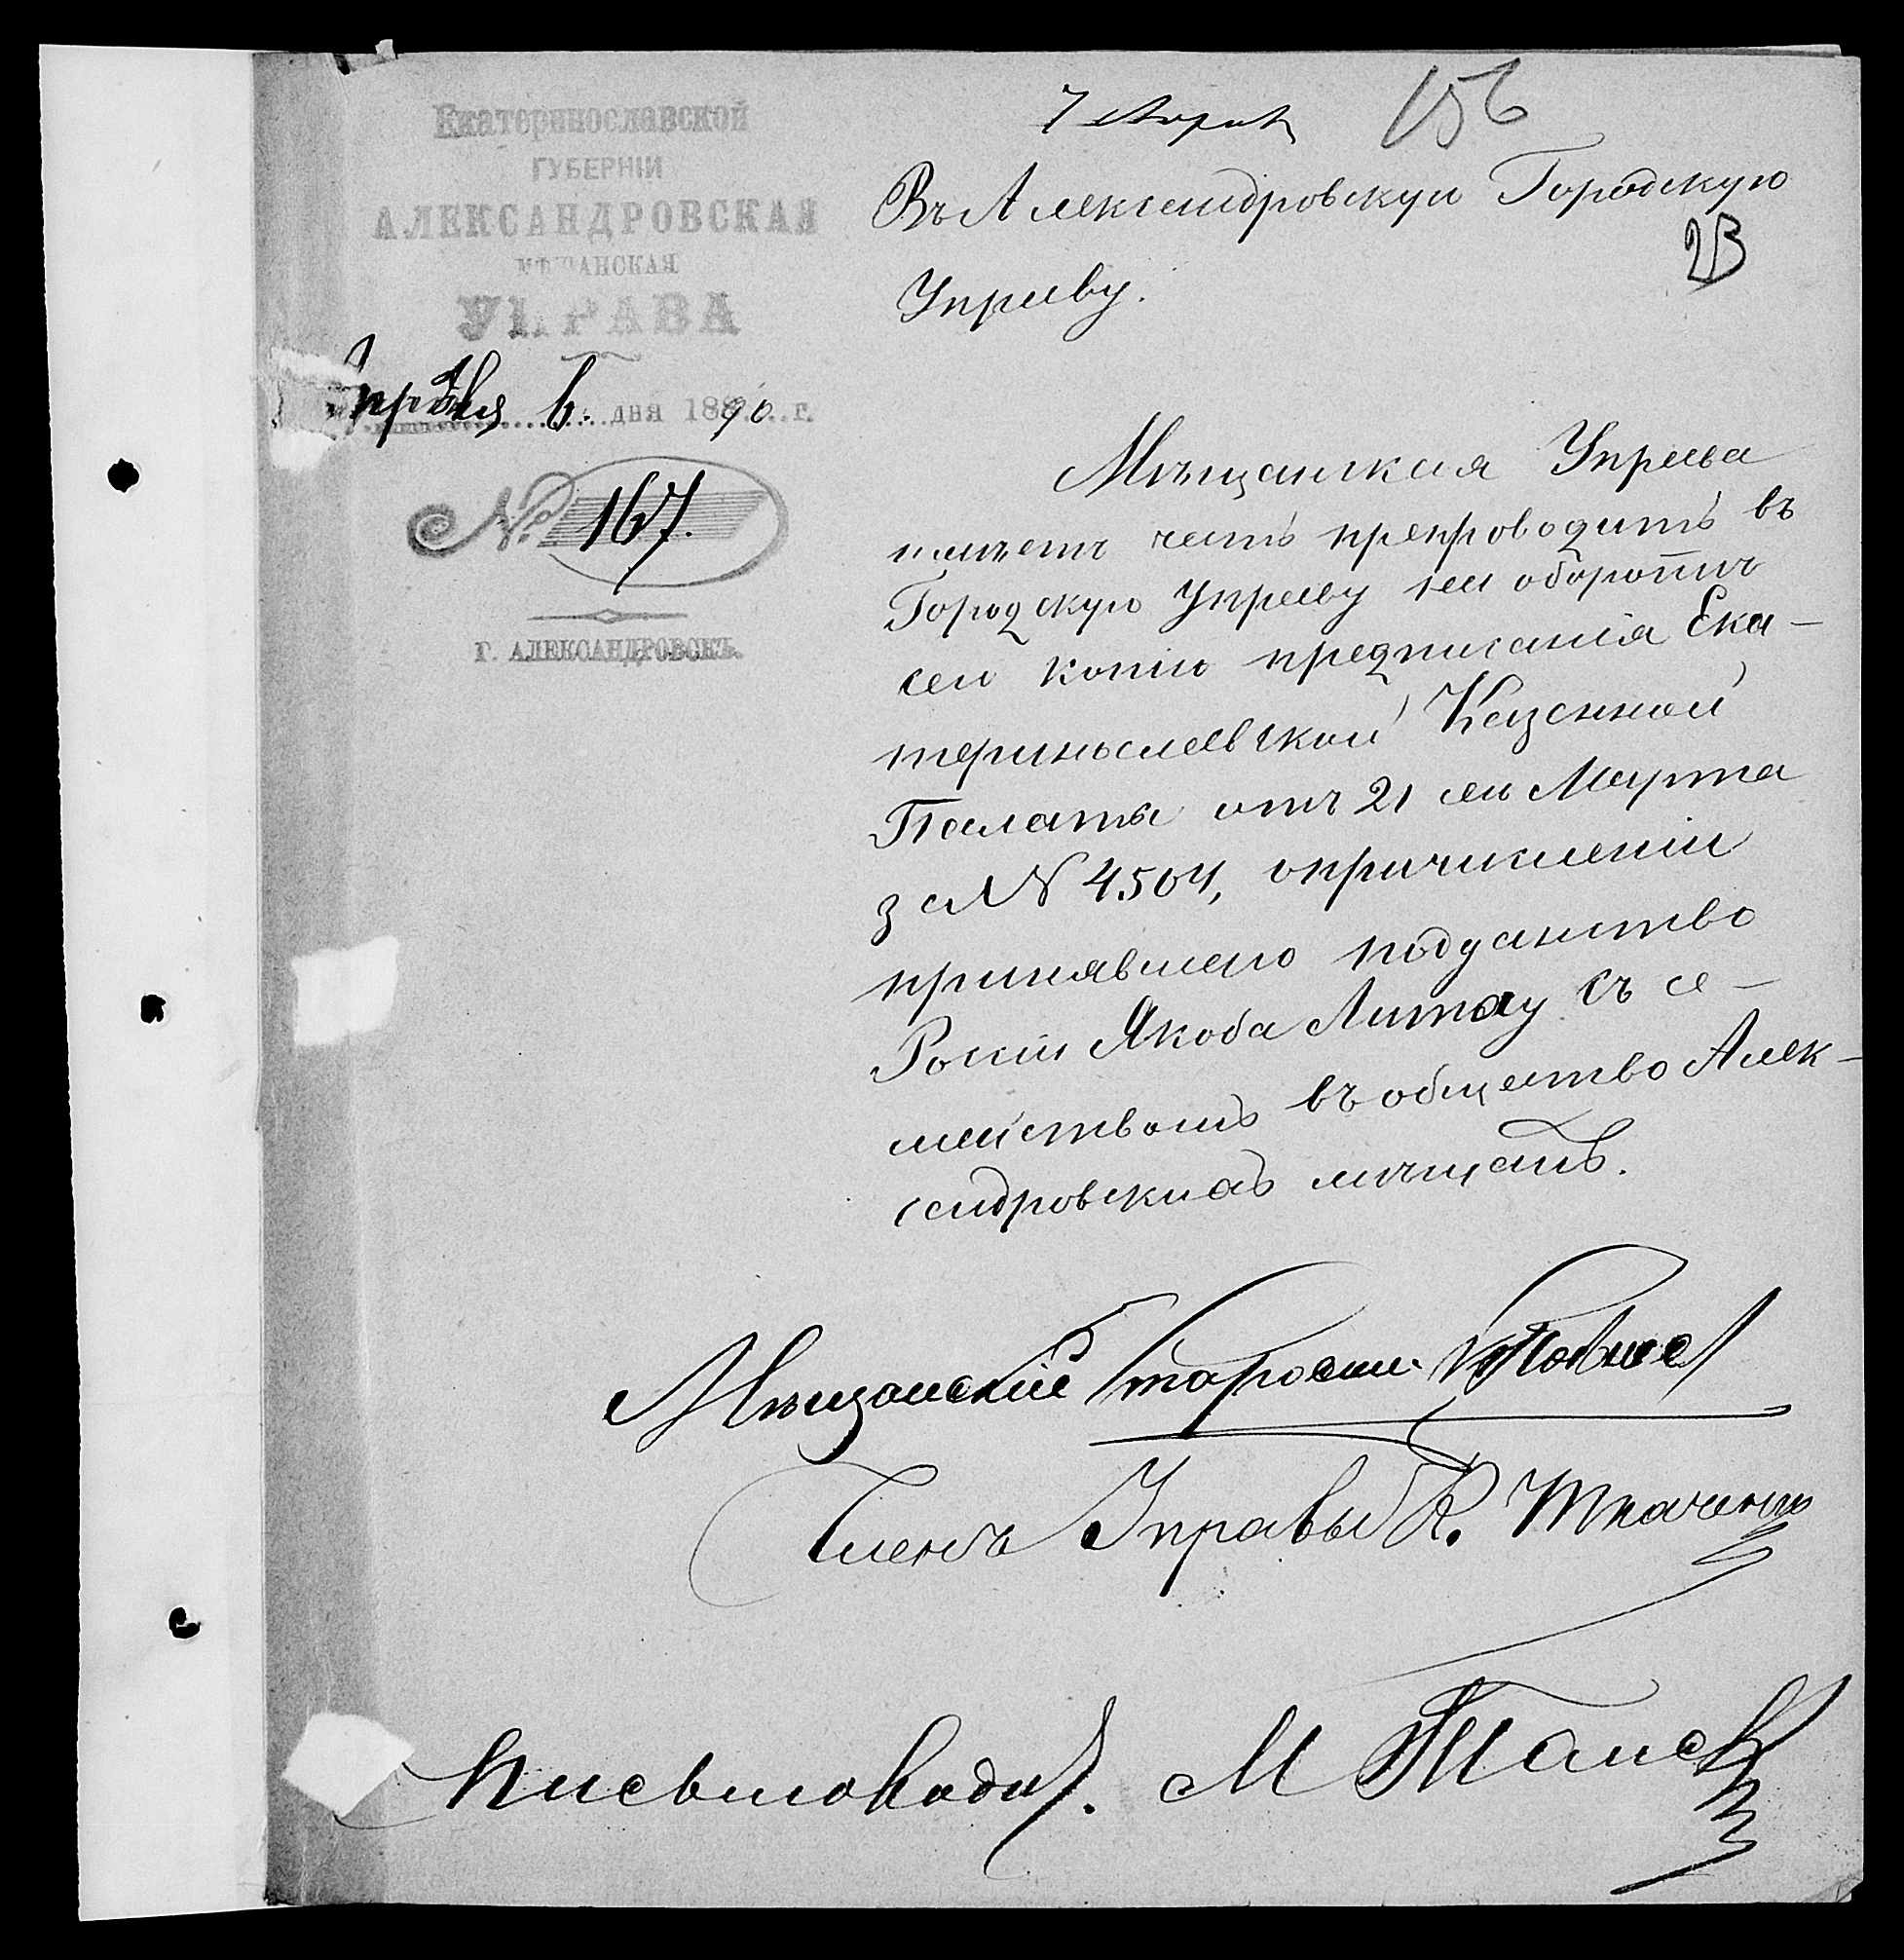 Екатеринославской
ГУБЕРНІИ
АЛЕКСАНДРОВСКАЯ
МѢЩАНСКАЯ
УПРАВА
Апрѣля 6 дня 1890 г.
№ 167.
Г. АЛЕКСАНДРОВСКЪ.
7 Апрѣл 156
Въ Александровскую Городскую
23
Управу.
Мѣщанская Управа
имѣетъ честь препроводить въ
Городскую Управу на оборотѣ
сего копію предписанія Ека-
теринославской Казенной
Палаты отъ 21 го Марта
за № 4504, о причисленіи
принявшего подданство
Росіи Якоба Литау съ се-
мействомъ въ общество Алек-
сандровскихъ мѣщанъ.
Мѣщанскій Староста
Членъ Управы К. Ткаченко
Письмоводит. М